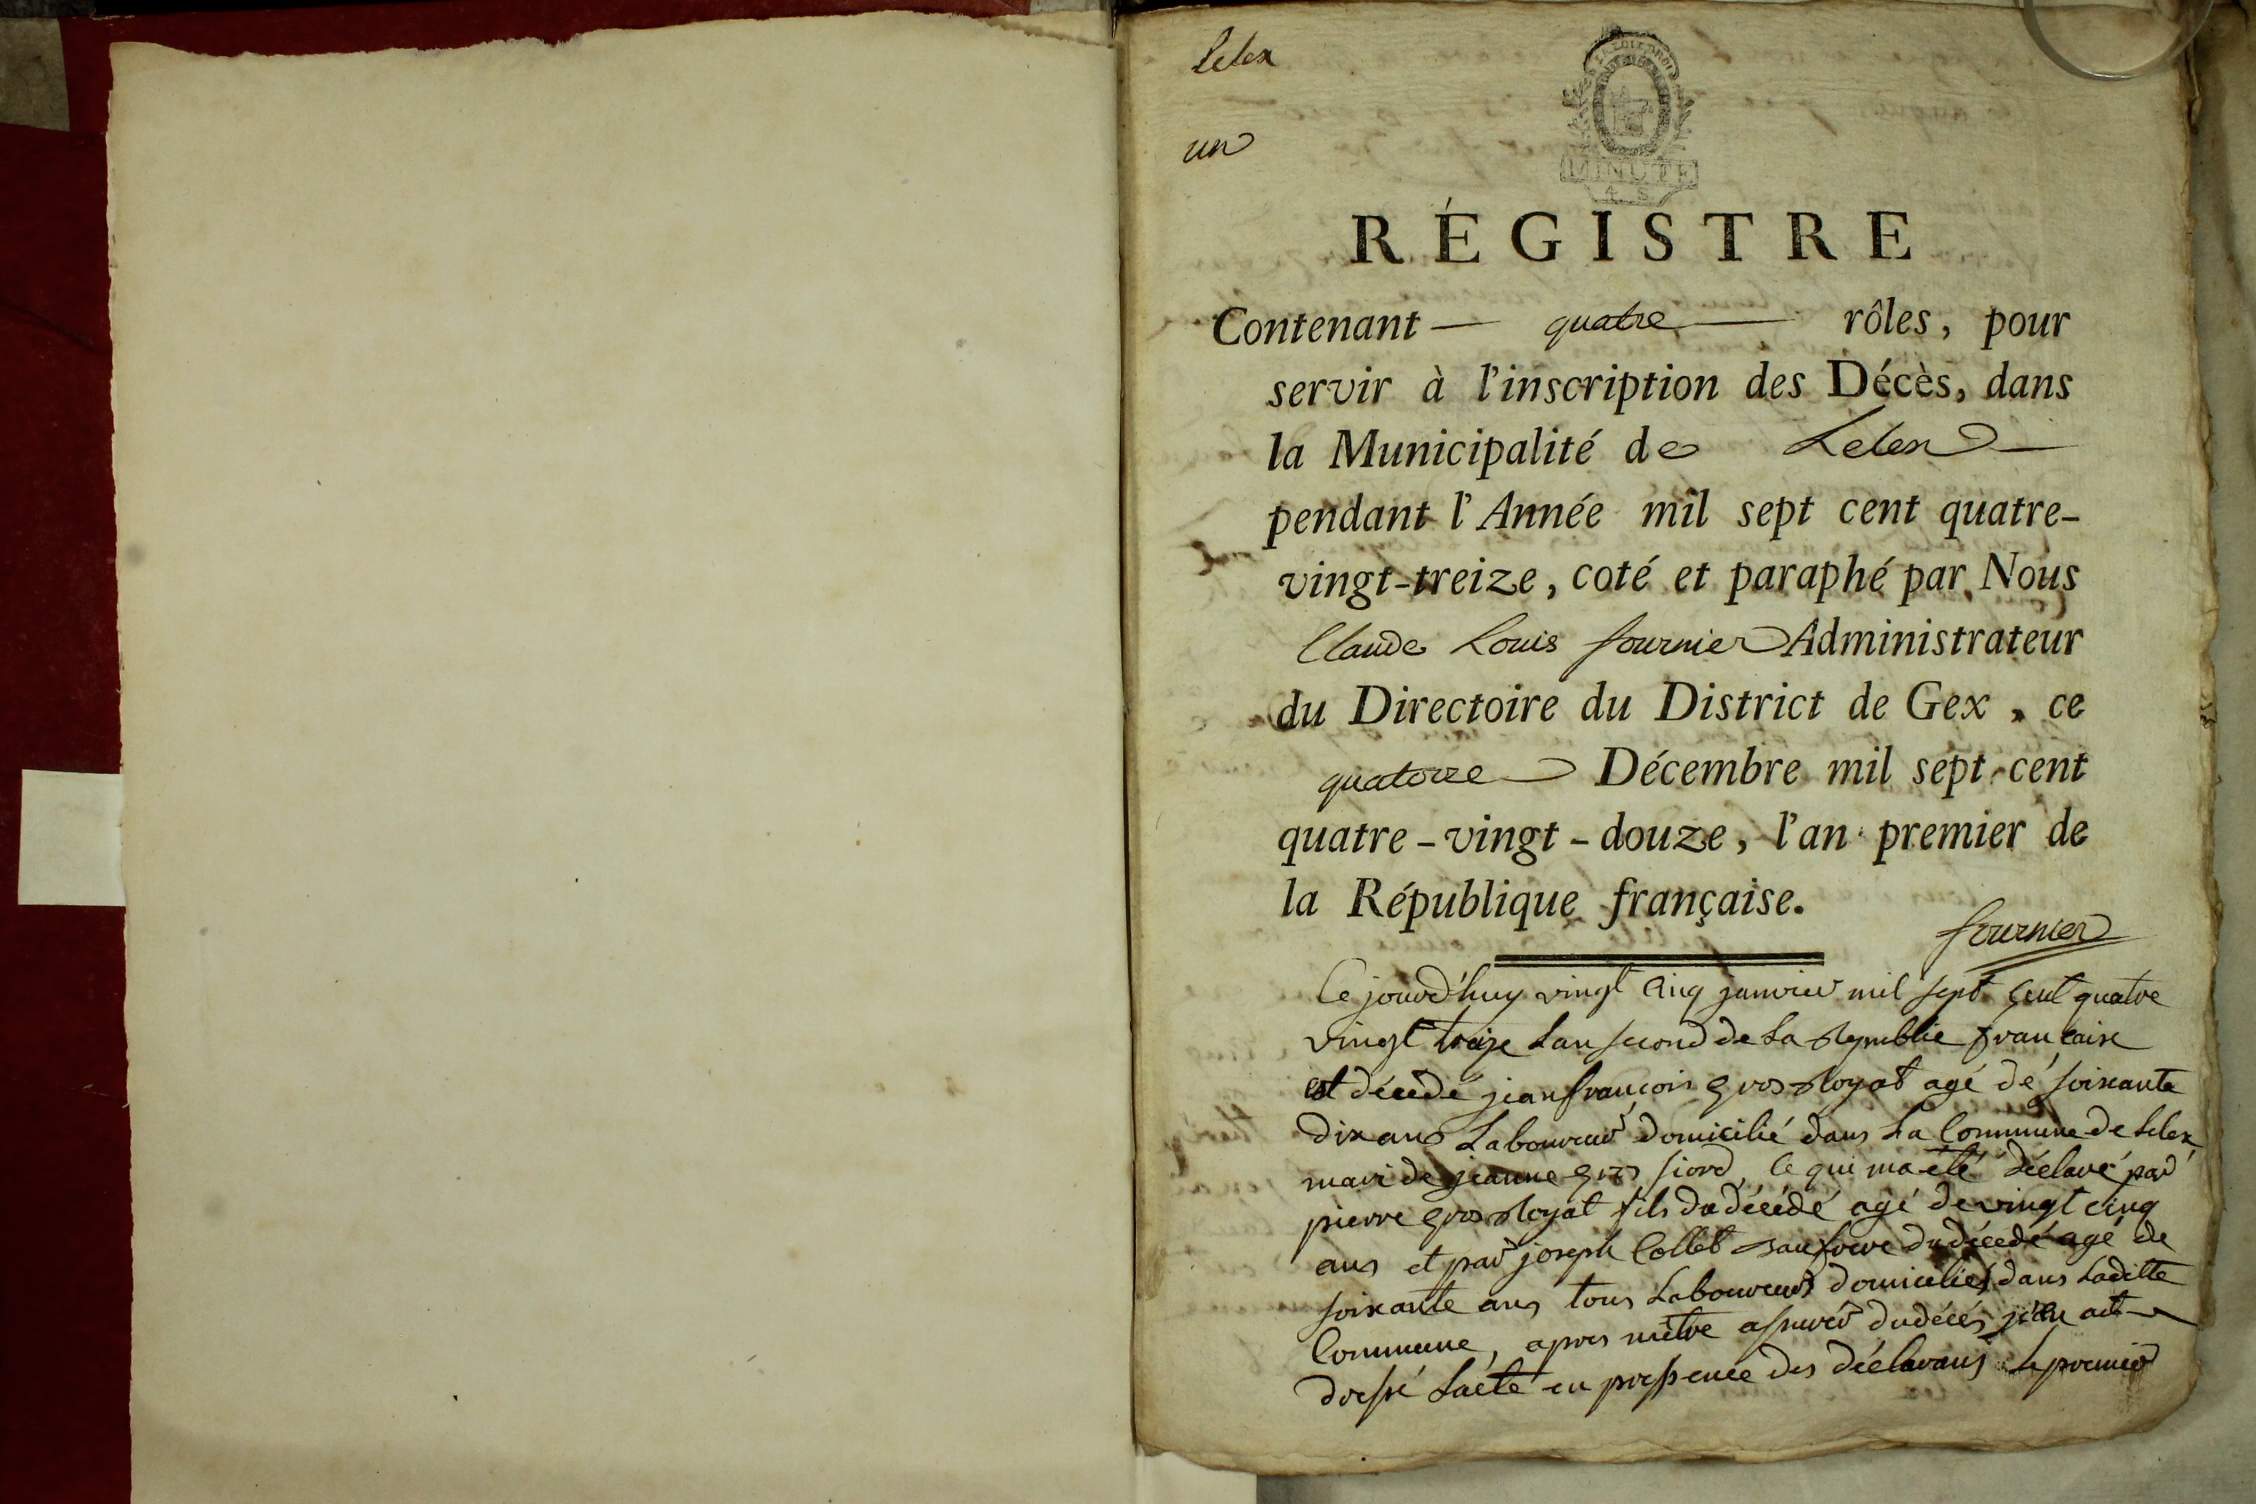 Lelex
un
MINUTE
4 S
RÉGISTRE
Contenant — quatre — rôles, pour
servir à l'inscription des Décès, dans
la Municipalité de Lelex —
pendant l'Année mil sept cent quatre-
vingt-treize, coté et paraphé par Nous
Claude Louis fournier Administrateur
du Directoire du District de Gex, ce
quatorze Décembre mil sept cent
quatre-vingt-douze, l'an premier de
la République française.
fournier
Ce jourd'huy vingt cinq janvier mil sept cent quatre
vingt treize Lan second de La Republie francaise
est décédé jean françois gros Royat agé dé soixante
dix ans Laboureur domicilié dans La Commune de Lelex
mari de jeanne gros fiord, ce qui ma été déclaré par
pierre gros Royat fils du décédé agé de vingt cinq
ans et par joseph Collet beaufrere du décédé agé de
soixante ans tous Laboureurs domiciliés dans Laditte
Commune, apres mêtre assurer du décés j'en ait
dressé Lacte en pressence des déclarans Le premier